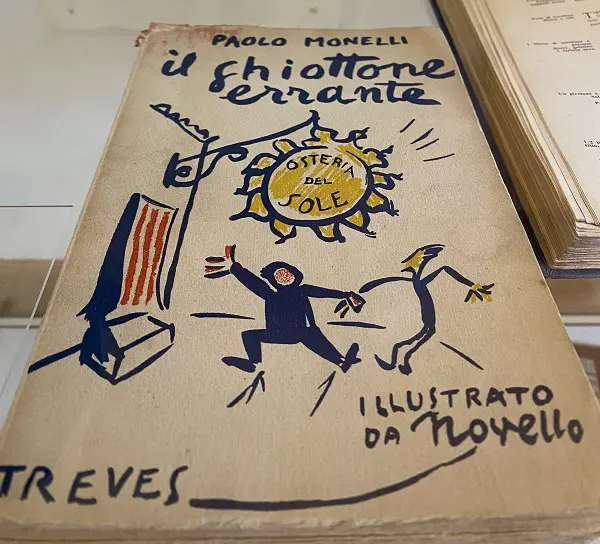 PAOLO MONELLI
il ghiottone
errante
OSTERIA
DEL
SOLE
ILLUSTRATO
DA Novello
TREVES